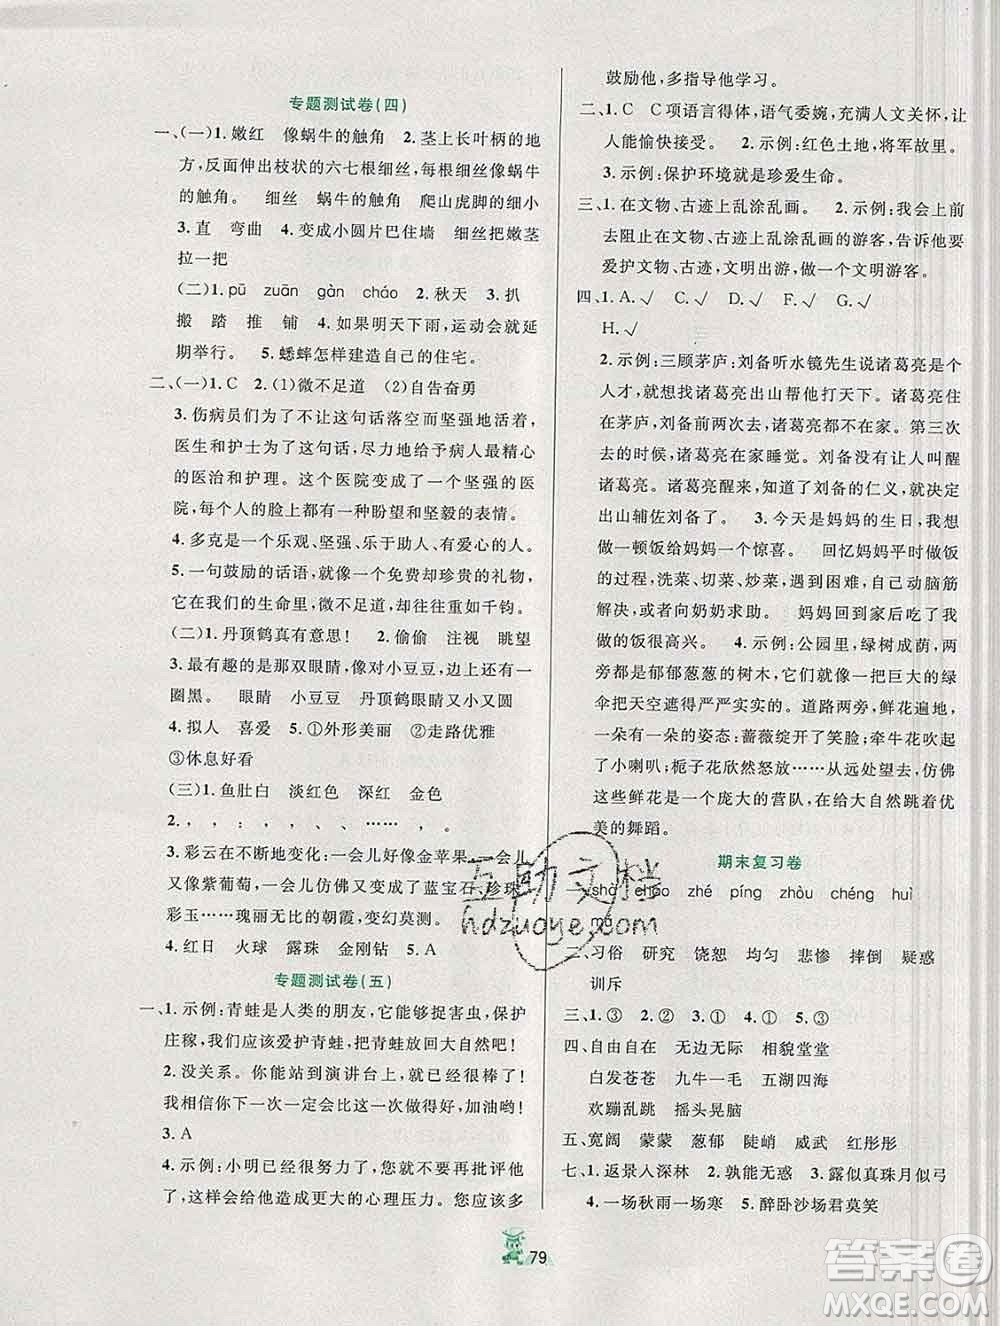 专题测试卷(四)
一、(一)1. 嫩红　像蜗牛的触角　2. 茎上长叶柄的地
方,反面伸出枝状的六七根细丝,每根细丝像蜗牛
的触角。　细丝　蜗牛的触角　爬山虎脚的细小
3. 直　弯曲　4. 变成小圆片巴住墙　细丝把嫩茎
拉一把
(二)1. pū　zuān　gàn　cháo　2. 秋天　3. 扒
搬　踏　推　铺　4. 如果明天下雨,运动会就延
期举行。　5. 蟋蟀怎样建造自己的住宅。
二、(一)1. C　2. (1)微不足道　(2)自告奋勇
3. 伤病员们为了不让这句话落空而坚强地活着,
医生和护士为了这句话,尽力地给予病人最精心
的医治和护理。这个医院变成了一所最坚强的医
院,每个人的脸上都有一种盼望和坚毅的表情。
4. 多克是一个乐观、坚强、乐于助人、有爱心的人。
5. 一句鼓励的话语,就像一个免费却珍贵的礼物,
它在我们的生命里,微不足道,却往往重如千钧。
(二)1. 丹顶鹤真有意思!　2. 偷偷　注视　眺望
3. 最有趣的是那双眼睛,像对小豆豆,边上还有一
圈黑。　眼睛　小豆豆　丹顶鹤眼睛又小又圆
4. 拟人　喜爱　5. ①外形美丽　②走路优雅
③休息好看
(三)1. 鱼肚白　淡红色　深红　金色
2. ,　:　,　、　、　……　,　。
3. 彩云在不断地变化:一会儿好像金苹果,一会儿
又像紫葡萄,一会儿仿佛又变成了蓝宝石、珍珠、
彩玉……瑰丽无比的朝霞,变幻莫测。
4. 红日　火球　露珠　金刚钻　5. A
专题测试卷(五)
一、1. 示例:青蛙是人类的朋友,它能够捉害虫,保护
庄稼,我们应该爱护青蛙,把青蛙放回大自然吧!
2. 没关系。你能站到演讲台上,就已经很棒了!
我相信你下一次一定会比这一次做得好,加油哟!
3. A
4. 示例:小明已经很努力了,我们再去批评他,
这样会给他造成更大的心理压力。您应该多
鼓励他,多指导他学习。
二、1. C　C项语言得体,语气委婉,充满人文关怀,让
人能愉快接受。　2. 示例:红色土地,将军故里。
3. 示例:保护环境就是珍爱生命。
三、1. 在文物、古迹上乱涂乱画。　2. 示例:我会上前
去阻止在文物、古迹上乱涂乱画的游客,告诉他要
爱护文物、古迹,文明出游,做一个文明游客。
四、1. A. √　C. √　D. √　F. √　G. √
H. √
2. 示例:三顾茅庐:刘备听水镜先生说诸葛亮是个
人才,就想找诸葛亮出山帮他打天下。诸葛亮住
在茅庐,刘备前两次去,诸葛亮都不在家。第三次
去的时候,诸葛亮在家睡觉。刘备没有让人叫醒
诸葛亮。诸葛亮醒了,知道了刘备的仁义,就决定
出山辅佐刘备了。　3. 今天是妈妈的生日,我想
做一顿饭给妈妈一个惊喜。　回忆妈妈平时做饭
的过程,洗菜、切菜、炒菜,遇到困难,自己开动脑筋
解决,或者向奶奶求助。　妈妈回到家后吃了我
做的饭很高兴。　4. 示例:公园里,绿树成荫,两
旁都是郁郁葱葱的树木,它们就像一把把巨大的绿
伞把天空遮得严严实实的。道路两旁,鲜花遍地,
一朵有一朵的姿态:蔷薇绽开了笑脸;牵牛花吹起
了小喇叭;栀子花欣然怒放……从远处望去,仿佛
这些鲜花是个庞大的营队,为大自然跳着优
美的舞蹈。
期末复习卷
一、shà　chāo　zhé　píng　zhòu　chéng　huì
mú
二、习俗　研究　饶恕　均匀　悲惨　摔倒　疑惑
训斥
三、1. ③　2. ②　3. ①　4. ①　5. ③
四、自由自在　无边无际　相貌堂堂
白发苍苍　九牛一毛　五湖四海
欢蹦乱跳　摇头晃脑
五、宽阔　蒙蒙　葱郁　陡峭　威武　红彤彤
七、1. 返景入深林　2. 孰能无惑　3. 露似真珠月似弓
4. 一场秋雨一场寒　5. 醉卧沙场君莫笑
79
互助文档
hdzuoye.com
答案圈
MXQE.COM